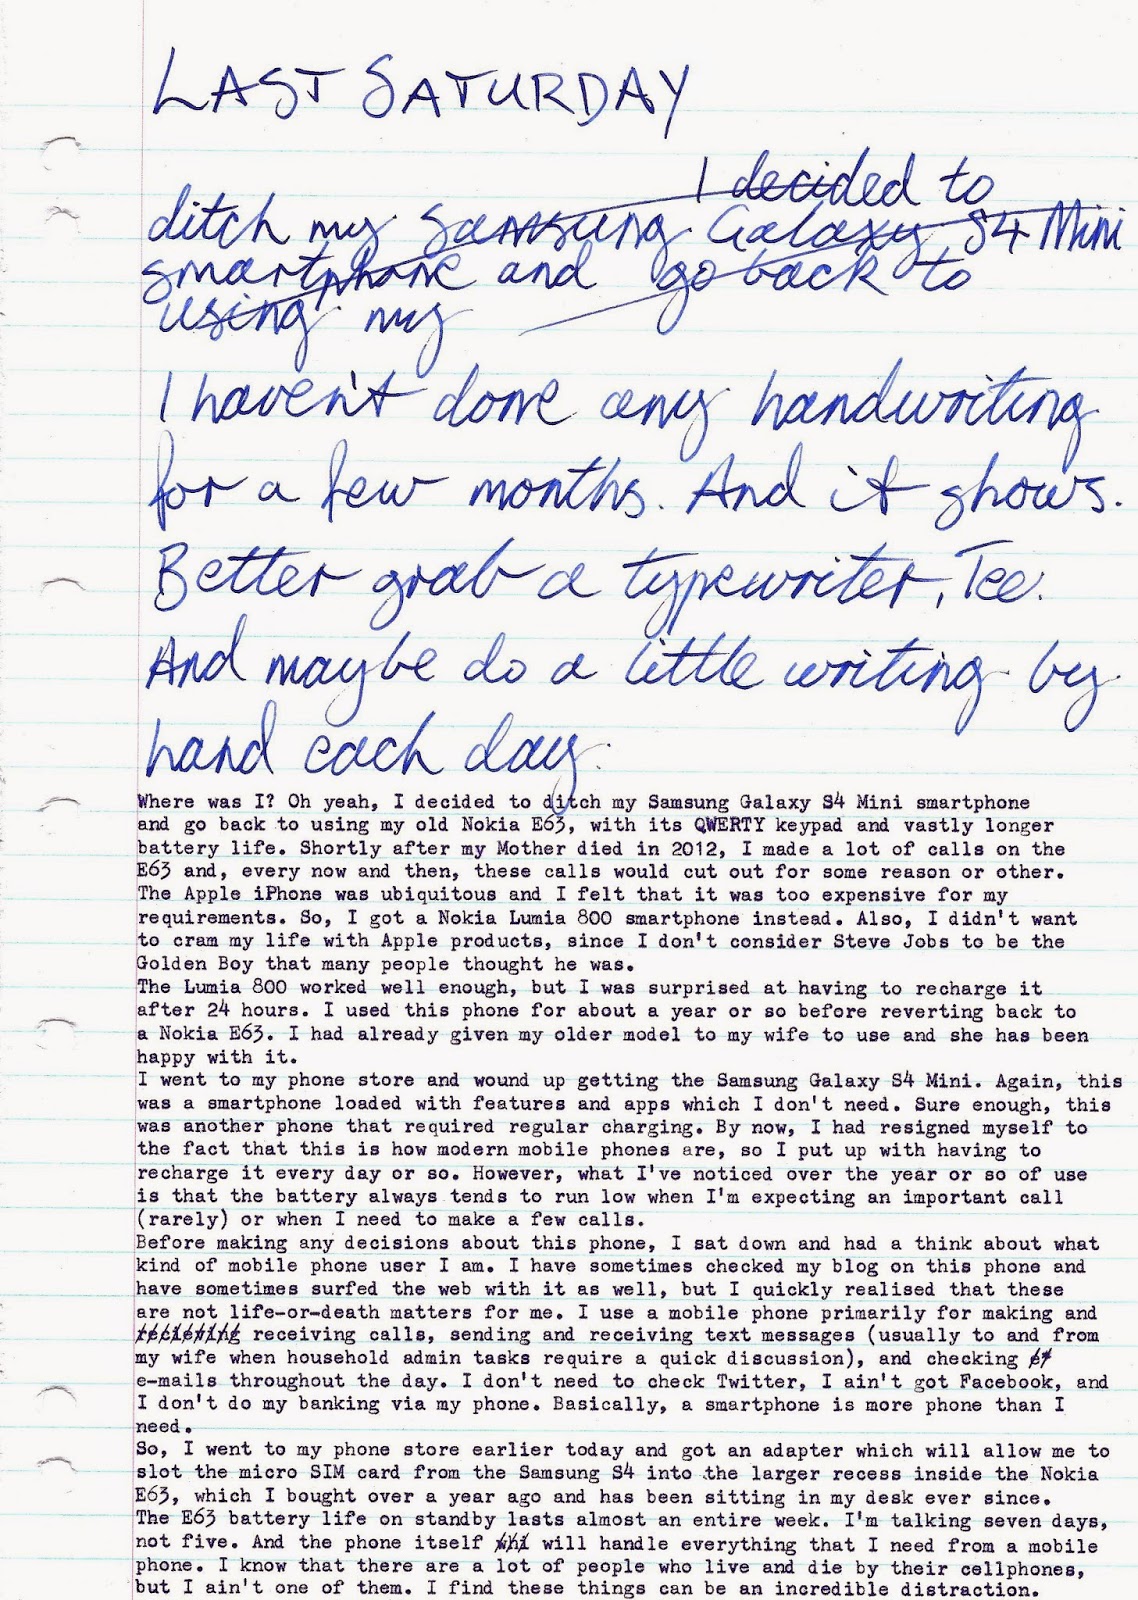 LAST SATURDAY
I decided to
ditch my Samsung Galaxy S4 Mini
smartphone and go back to
using my
I haven't done any handwriting
for a few months. And it shows.
Better grab a typewriter, Tee.
And maybe do a little writing by
hand each day.
Where was I? Oh yeah, I decided to ditch my Samsung Galaxy S4 Mini smartphone
and go back to using my old Nokia E63, with its QWERTY keypad and vastly longer
battery life. Shortly after my Mother died in 2012, I made a lot of calls on the
E63 and, every now and then, these calls would cut out for some reason or other.
The Apple iPhone was ubiquitous and I felt that it was too expensive for my
requirements. So, I got a Nokia Lumia 800 smartphone instead. Also, I didn't want
to cram my life with Apple products, since I don't consider Steve Jobs to be the
Golden Boy that many people thought he was.
The Lumia 800 worked well enough, but I was surprised at having to recharge it
after 24 hours. I used this phone for about a year or so before reverting back to
a Nokia E63. I had already given my older model to my wife to use and she has been
happy with it.
I went to my phone store and wound up getting the Samsung Galaxy S4 Mini. Again, this
was a smartphone loaded with features and apps which I don't need. Sure enough, this
was another phone that required regular charging. By now, I had resigned myself to
the fact that this is how modern mobile phones are, so I put up with having to
recharge it every day or so. However, what I've noticed over the year or so of use
is that the battery always tends to run low when I'm expecting an important call
(rarely) or when I need to make a few calls.
Before making any decisions about this phone, I sat down and had a think about what
kind of mobile phone user I am. I have sometimes checked my blog on this phone and
have sometimes surfed the web with it as well, but I quickly realised that these
are not life-or-death matters for me. I use a mobile phone primarily for making and
receiving calls, sending and receiving text messages (usually to and from
my wife when household admin tasks require a quick discussion), and checking
e-mails throughout the day. I don't need to check Twitter, I ain't got Facebook, and
I don't do my banking via my phone. Basically, a smartphone is more phone than I
need.
So, I went to my phone store earlier today and got an adapter which will allow me to
slot the micro SIM card from the Samsung S4 into the larger recess inside the Nokia
E63, which I bought over a year ago and has been sitting in my desk ever since.
The E63 battery life on standby lasts almost an entire week. I'm talking seven days,
not five. And the phone itself will handle everything that I need from a mobile
phone. I know that there are a lot of people who live and die by their cellphones,
but I ain't one of them. I find these things can be an incredible distraction.